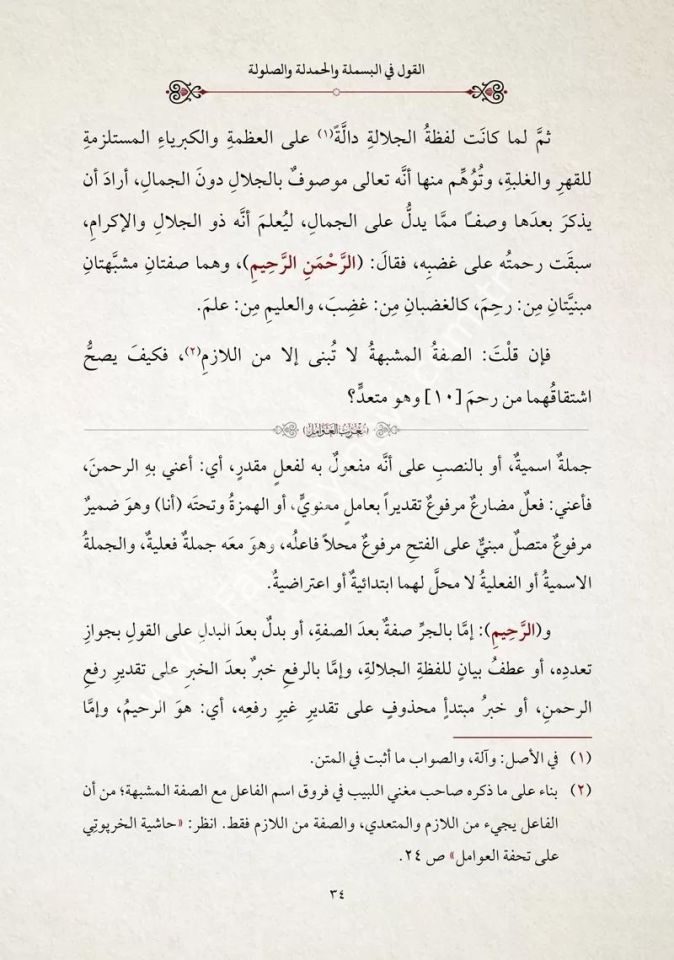 القول في البسملة والحمدلة والصلولة
ثمَّ لما كانَت لفظةُ الجلالةِ دالَّةً(١) على العظمةِ والكبرياءِ المستلزمةِ
للقهرِ والغلبةِ، وتُوُهِّم منها أنَّه تعالى موصوفٌ بالجلالِ دونَ الجمالِ، أرادَ أن
يذكرَ بعدَها وصفـًا ممَّا يدلُّ على الجمالِ، ليُعلمَ أنَّه ذو الجلالِ والإكرامِ،
سبقَت رحمتُه على غضبِه، فقالَ: (الرَّحْمَنِ الرَّحِيمِ)، وهما صفتانِ مشبَّهتانِ
مبنيَّتانِ مِن: رحِمَ، كالغضبانِ مِن: غضِبَ، والعليمِ مِن: علمَ.
فإن قلْتَ: الصفةُ المشبهةُ لا تُبنى إلا من اللازمِ(٢)، فكيفَ يصحُّ
اشتقاقُهما من رحمَ [١٠] وهو متعدٍّ؟
جملةٌ اسميةٌ، أو بالنصبِ على أنَّه مفعولٌ به لفعلٍ مقدرٍ، أي: أعني بهِ الرحمنَ،
فأعني: فعلٌ مضارعٌ مرفوعٌ تقديراً بعاملٍ معنويٍّ، أو الهمزةُ وتحتَه (أنا) وهوَ ضميرٌ
مرفوعٌ متصلٌ مبنيٌّ على الفتحِ مرفوعٌ محلاً فاعلُه، وهوَ معَه جملةٌ فعليةٌ، والجملةُ
الاسميةُ أو الفعليةُ لا محلَّ لهما ابتدائيةٌ أو اعتراضيةٌ.
و(الرَّحِيمِ): إمَّا بالجرِّ صفةٌ بعدَ الصفةِ، أو بدلٌ بعدَ البدلِ على القولِ بجوازِ
تعددِه، أو عطفُ بيانٍ للفظةِ الجلالةِ، وإمَّا بالرفعِ خبرٌ بعدَ الخبرِ على تقديرِ رفعِ
الرحمنِ، أو خبرُ مبتدأٍ محذوفٍ على تقديرِ غيرِ رفعِه، أي: هوَ الرحيمُ، وإمَّا
(١) في الأصل: وآلة، والصواب ما أثبت في المتن.
(٢) بناء على ما ذكره صاحب مغني اللبيب في فروق اسم الفاعل مع الصفة المشبهة؛ من أن
الفاعل يجيء من اللازم والمتعدي، والصفة من اللازم فقط. انظر: «حاشية الخربوتِي
على تحفة العوامل» ص ٢٤.
٣٤